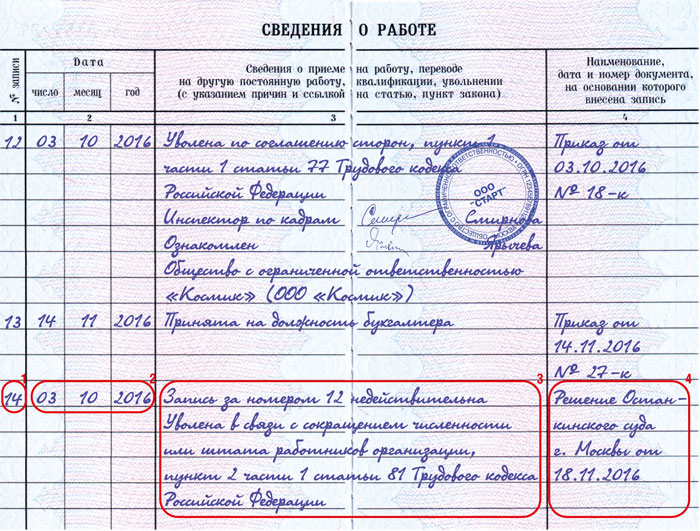 СВЕДЕНИЯ О РАБОТЕ
№ записи
Дата
число месяц год
Сведения о приеме на работу, переводе
на другую постоянную работу, квалификации, увольнении
(с указанием причин и ссылкой на статью, пункт закона)
Наименование,
дата и номер документа,
на основании которого
внесена запись
1 2 3 4
12 03 10 2016 Уволена по соглашению сторон, пункт 1 Приказ от
части 1 статьи 77 Трудового кодекса 03.10.2016
Российской Федерации № 18-к
Инспектор по кадрам Смирнова
Ознакомлен Ярычева
ООО
"СТАРТ"
Общество с ограниченной ответственностью
«Космик» (ООО «Космик»)
13 14 11 2016 Принята на должность бухгалтера Приказ от
14.11.2016
№ 27-к
1 2 3 4
14 03 10 2016 Запись за номером 12 недействительна Решение Остан-
Уволена в связи с сокращением численности кинского суда
или штата работников организации, г. Москвы от
пункт 2 части 1 статьи 81 Трудового кодекса 18.11.2016
Российской Федерации